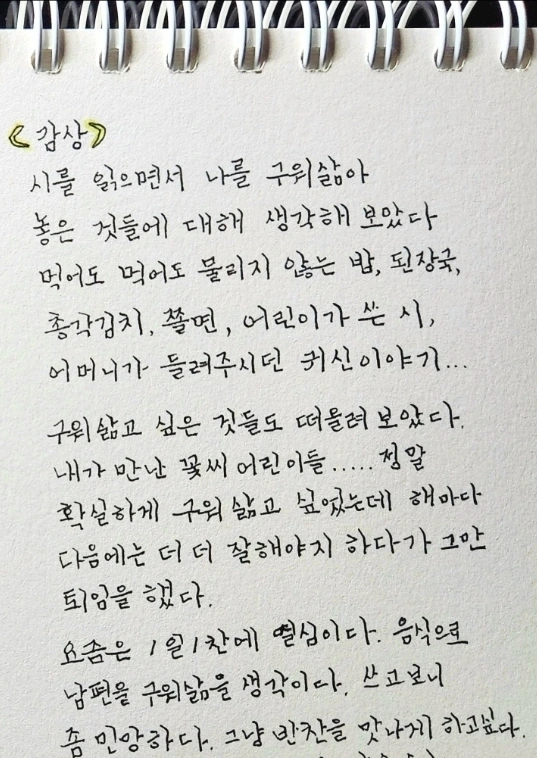 《감상》
시를 읽으면서 나를 구워삶아
놓은 것들에 대해 생각해 보았다
먹어도 먹어도 물리지 않는 밥, 된장국,
총각김치, 쫄면, 어린이가 쓴 시,
어머니가 들려주시던 귀신이야기...
구워삶고 싶은 것들도 떠올려 보았다.
내가 만난 꽃씨 어린이들..... 정말
확실하게 구워삶고 싶었는데 해마다
다음에는 더 더 잘해야지 하다가 그만
퇴임을 했다.
요즘은 1일1찬에 열심이다. 음식으로
남편을 구워삶을 생각이다. 쓰고보니
좀 민망하다. 그냥 반찬을 맛나게 하고싶다.